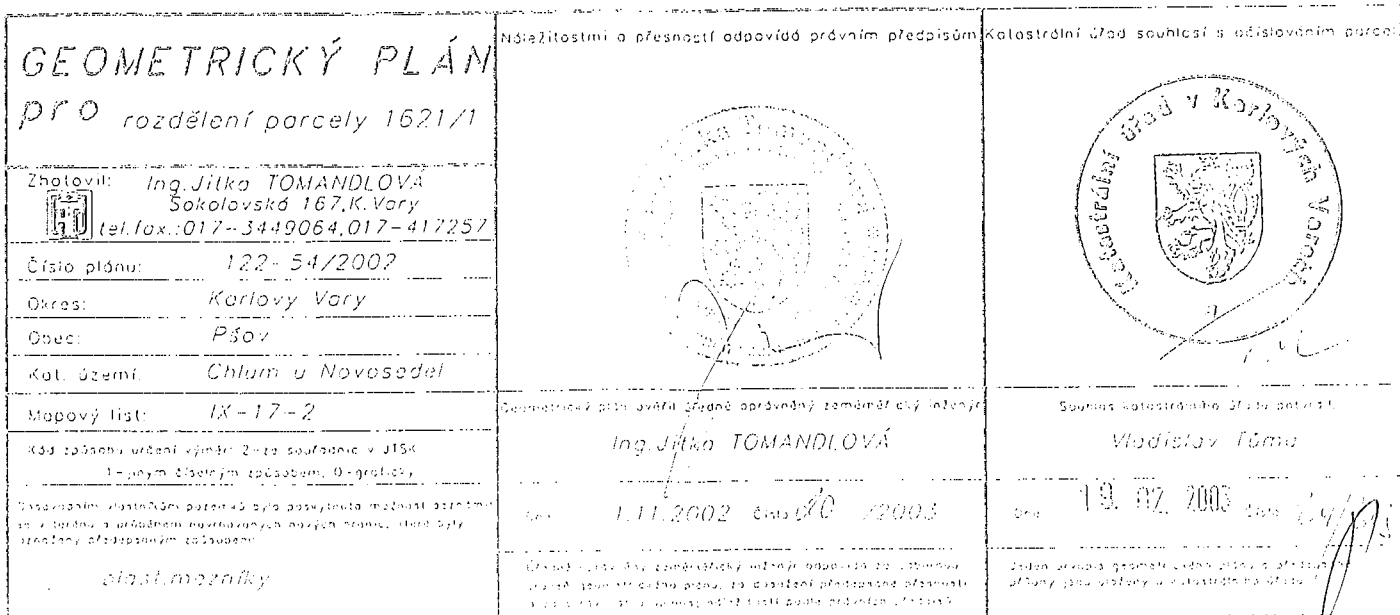 GEOMETRICKÝ PLÁN
pro rozdělení parcely 1621/1
Zhotovil: Ing.Jitka TOMANDLOVÁ
Sokolovská 167,K.Vary
tel.fax.:017-3449064,017-417257
Číslo plánu: 122-54/2002
Okres: Karlovy Vary
Obec: Pšov
Kat. území: Chlum u Novosedel
Mapový list: IX-17-2
Kód způsobu určení výměr: 2-ze souřadnic v JTSK
1-jiným číselným způsobem, 0-graficky
Dosavadním vlastníkům pozemků byla poskytnuta možnost seznámit
se v terénu s průběhem navrhovaných nových hranic, které byly
označeny předepsaným způsobem:
plast.mezníky
Náležitostmi a přesností odpovídá právním předpisům
Jitka
Geometrický plán ověřil úředně oprávněný zeměměřický inženýr
Ing.Jitka TOMANDLOVÁ
Dne 1.11.2002 Číslo /2003
Katastrální úřad souhlasí s očíslováním parcel
Katastrální úřad v Karlových Varech
Souhlas katastrálního úřadu potvrdil
Vladislav Tůma
Dne 19. 02. 2003 Číslo